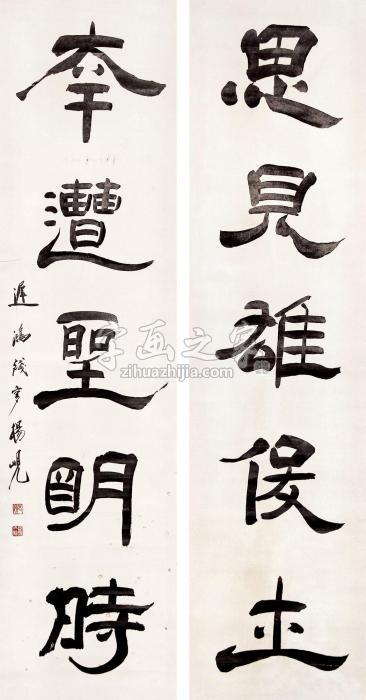 思見雄俊士
幸遭聖眀時
遲鴻殘叟楊峴
字画之家
zihuazhijia.com